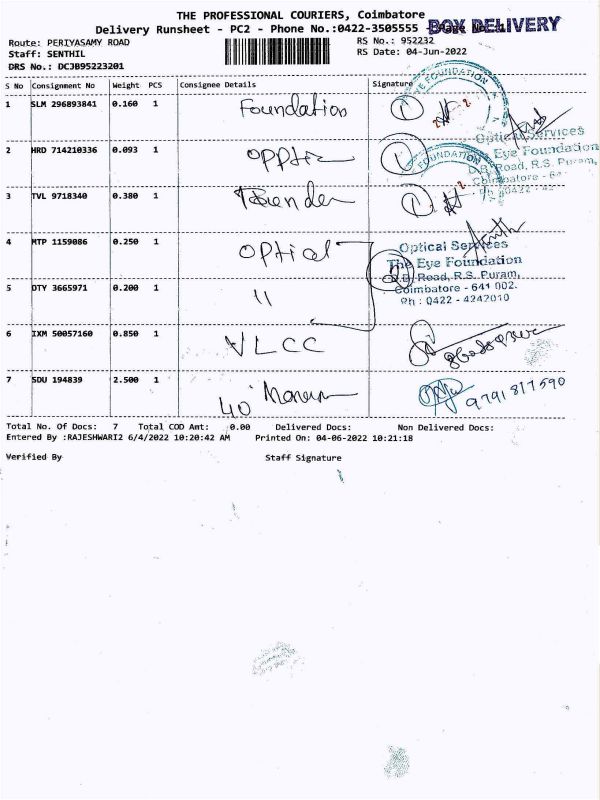 THE PROFESSIONAL COURIERS, Coimbatore
Delivery Runsheet - PC2 - Phone No.:0422-3505555
BOX DELIVERY
Route: PERIYASAMY ROAD
RS No.: 952232
Staff: SENTHIL
RS Date: 04-Jun-2022
DRS No.: DCJB95223201
S No Consignment No Weight PCS Consignee Details Signature
1 SLM 296893841 0.160 1 Foundation
2 HRD 714210336 0.093 1
3 TVL 9718340 0.380 1
4 MTP 1159086 0.250 1 optical
5 DTY 3665971 0.200 1 11
6 IXM 50057160 0.850 1 VLCC
7 SDU 194839 2.500 1 40
9791817590
EYE FOUNDATION
Optical Services
Eye Foundation
D.B. Road, R.S. Puram,
Coimbatore
FOUNDATION
Optical Services
The Eye Foundation
D.B. Road, R.S. Puram,
Coimbatore - 641 002.
Ph : 0422 - 4242010
Total No. Of Docs: 7 Total COD Amt: 0.00 Delivered Docs: Non Delivered Docs:
Entered By :RAJESHWARI2 6/4/2022 10:20:42 AM Printed On: 04-06-2022 10:21:18
Verified By Staff Signature